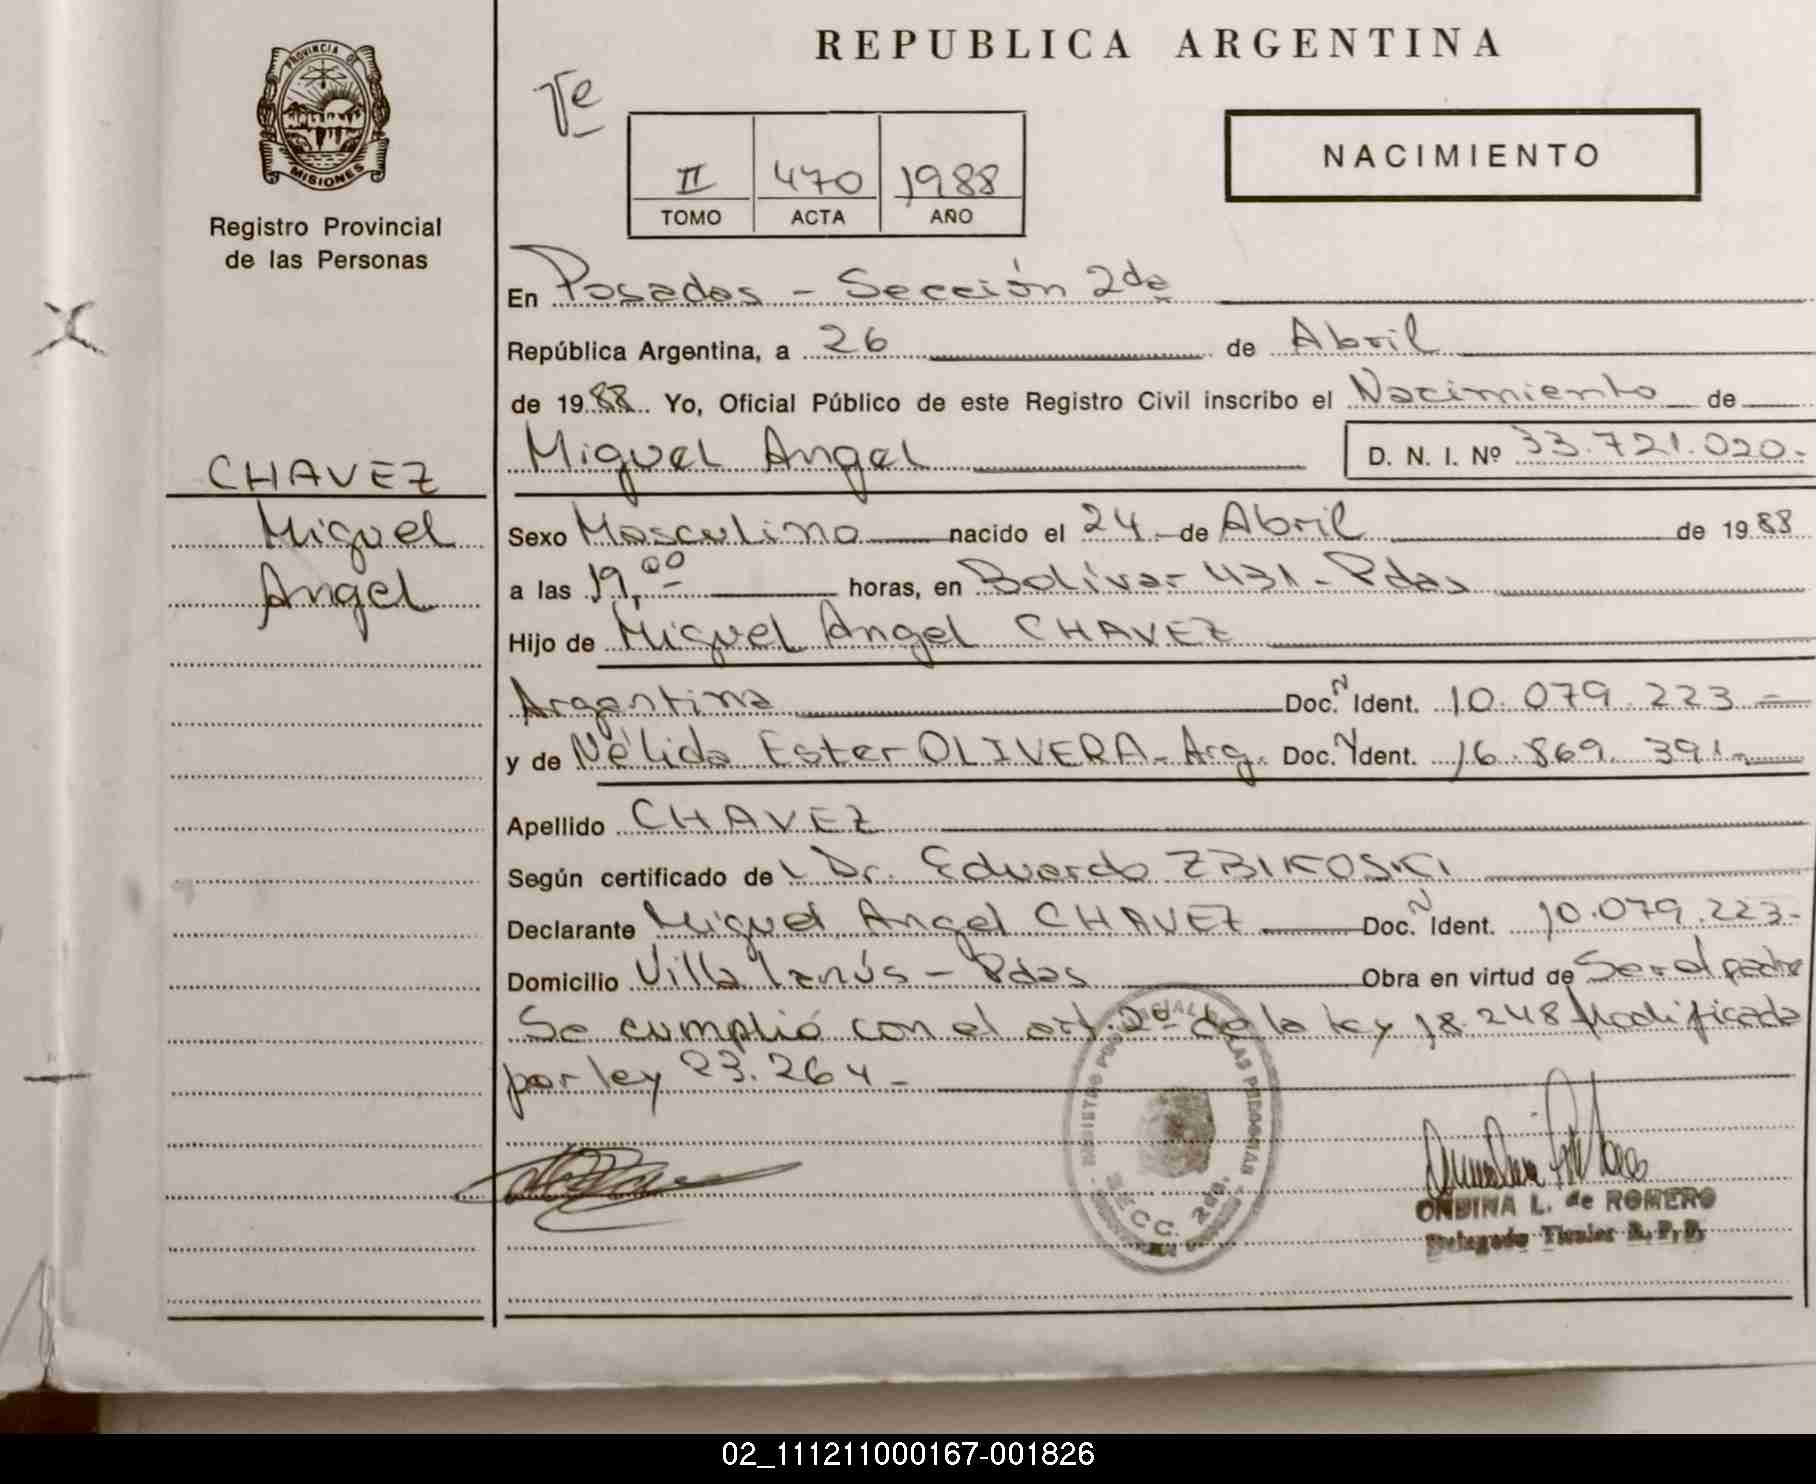 REPUBLICA ARGENTINA
PROVINCIA DE
MISIONES
Registro Provincial
de las Personas
NACIMIENTO
II 470 1988
TOMO ACTA AÑO
En Posadas - Sección 2da
República Argentina, a 26 de Abril
de 1988. Yo, Oficial Público de este Registro Civil inscribo el Nacimiento de
Miguel Angel D. N. I. Nº 33.721.020.-
CHAVEZ
Miguel
Angel
Sexo Masculino nacido el 24 de Abril de 1988
a las 19,00 horas, en Bolívar 431 - Pdas
Hijo de Miguel Angel CHAVEZ
Argentina Doc. N Ident. 10.079.223 -
y de Nélida Ester OLIVERA - Arg. Doc. N Ident. 16.869.391 -
Apellido CHAVEZ
Según certificado del Dr. Eduardo ZBIKOSKI
Declarante Miguel Angel CHAVEZ Doc. N Ident. 10.079.223-
Domicilio Villa Lanús - Pdas Obra en virtud de Ser el padre
Se cumplió con el art. 2º de la ley 18.248 Modificada
por ley 23.264 -
SECC. 2da.
ONDINA L. de ROMERO
Delegado Titular R. P. P.
02_111211000167-001826